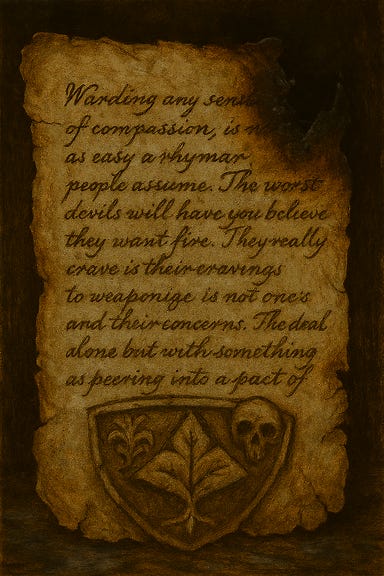 Warding any
of compassion, is
as easy a rhymar
people assume. The worst
devils will have you believe
they want fire. They really
crave is their cravings
to weaponige is not one's
and their concerns. The deal
alone but with something
as peering into a pact of